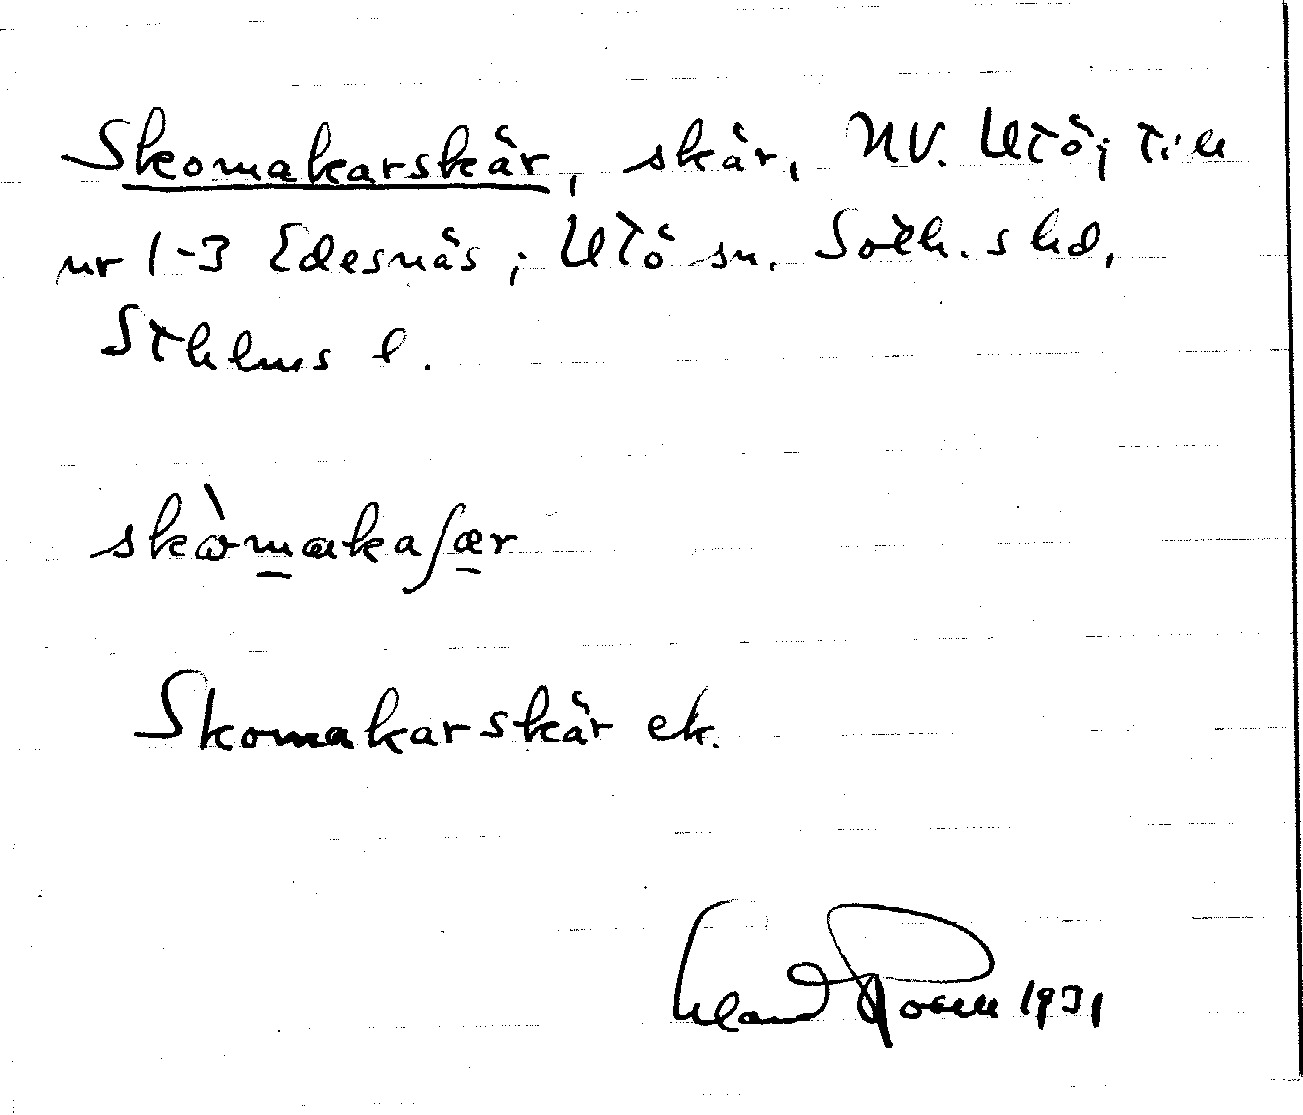 Skomakarskär, skär, NV. Utö; till
nr 1-3 Edesnäs; Utö sn. Soth. s hd,
Sthlms l.
skòmakaʃær
Skomakarskär ek.
1931